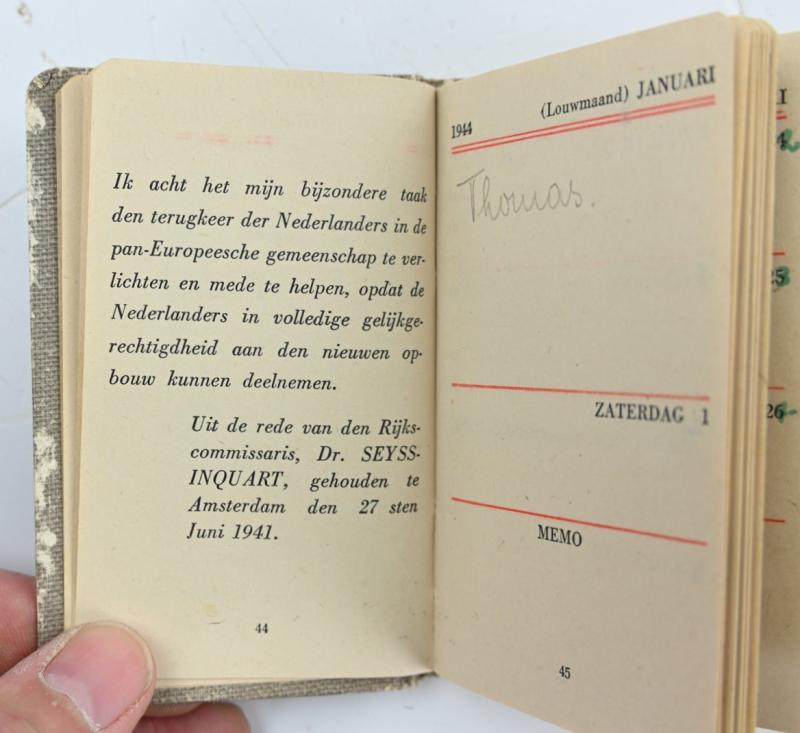 Ik acht het mijn bijzondere taak
den terugkeer der Nederlanders in de
pan-Europeesche gemeenschap te ver-
lichten en mede te helpen, opdat de
Nederlanders in volledige gelijkge-
rechtigdheid aan den nieuwen op-
bouw kunnen deelnemen.
Uit de rede van den Rijks-
commissaris, Dr. SEYSS-
INQUART, gehouden te
Amsterdam den 27 sten
Juni 1941.
44
1944 (Louwmaand) JANUARI
Thomas.
ZATERDAG 1
MEMO
45
26